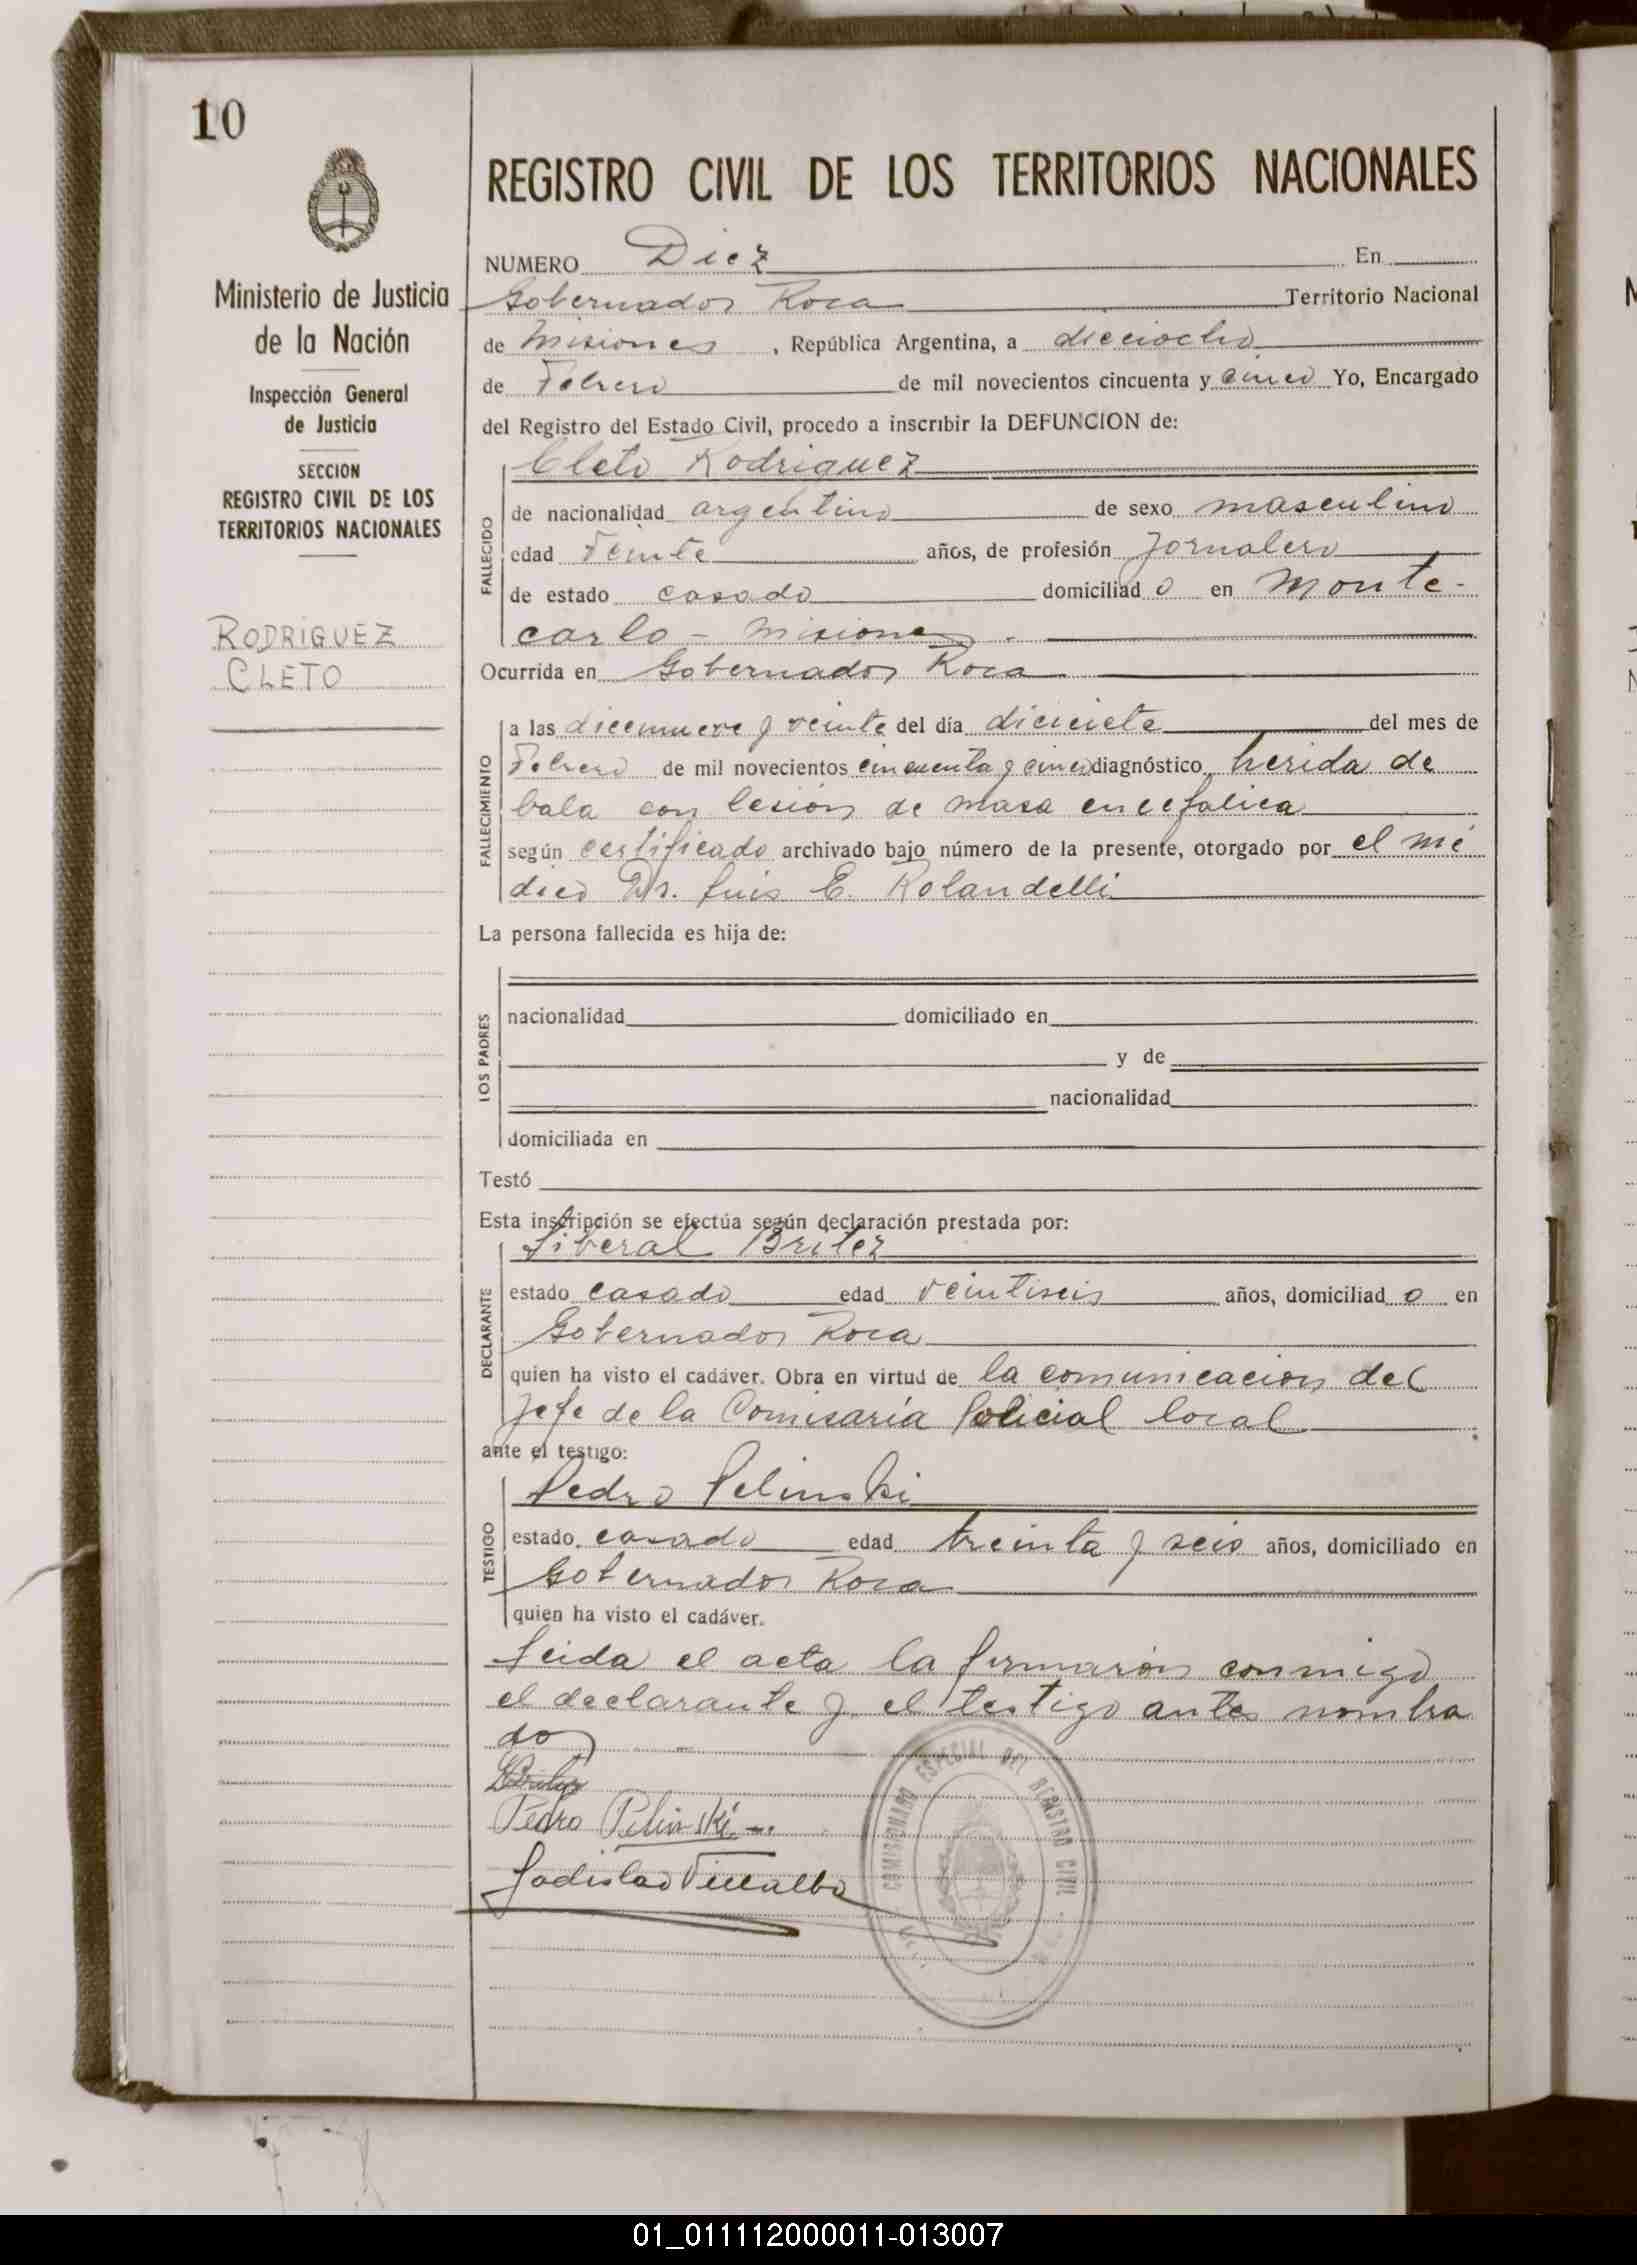 10
REGISTRO CIVIL DE LOS TERRITORIOS NACIONALES
Ministerio de Justicia
de la Nación
Inspección General
de Justicia
SECCION
REGISTRO CIVIL DE LOS
TERRITORIOS NACIONALES
RODRIGUEZ
CLETO
NUMERO Diez En
Gobernador Roca Territorio Nacional
de Misiones, República Argentina, a dieciocho
de Febrero de mil novecientos cincuenta y cinco Yo, Encargado
del Registro del Estado Civil, procedo a inscribir la DEFUNCION de:
Cleto Rodriguez
FALLECIDO
de nacionalidad argentino de sexo masculino
edad veinte años, de profesión Jornalero
de estado casado domiciliado en Monte-
carlo - Misiones.
Ocurrida en Gobernador Roca
FALLECIMIENTO
a las diecinueve y veinte del día diecisiete del mes de
Febrero de mil novecientos cincuenta y cinco diagnóstico herida de
bala con lesión de masa encefalica
según certificado archivado bajo número de la presente, otorgado por el mé
dico Dr. Luis E. Rolandelli
La persona fallecida es hija de:
LOS PADRES
nacionalidad domiciliado en
y de
nacionalidad
domiciliada en
Testó
Esta inscripción se efectúa según declaración prestada por:
Liberal Britez
DECLARANTE
estado casado edad veintiseis años, domiciliado en
Gobernador Roca
quien ha visto el cadáver. Obra en virtud de la comunicacion del
Jefe de la Comisaría Policial local
ante el testigo:
Pedro Pelinski
TESTIGO
estado casado edad treinta y seis años, domiciliado en
Gobernador Roca
quien ha visto el cadáver.
Leida el acta la firmarón conmigo
el declarante y el testigo antes nombra
do
LBritez
Pedro Pelinski
Ladislao Villalba
COMISIONADO ESPECIAL DEL REGISTRO CIVIL
01_011112000011-013007